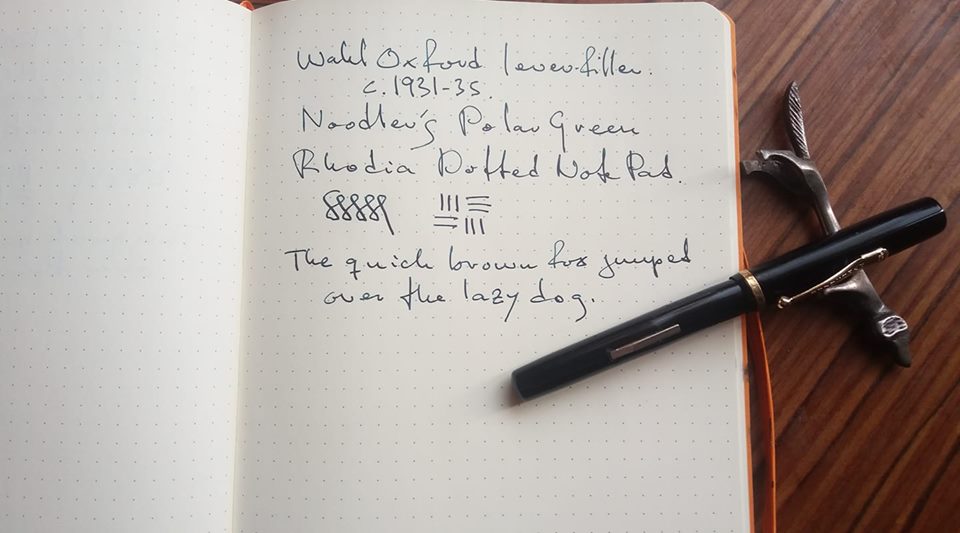 Wahl Oxford lever-filler.
c. 1931-35.
Noodler's Polar Green
Rhodia Dotted Note Pad.
The quick brown fox jumped
over the lazy dog.